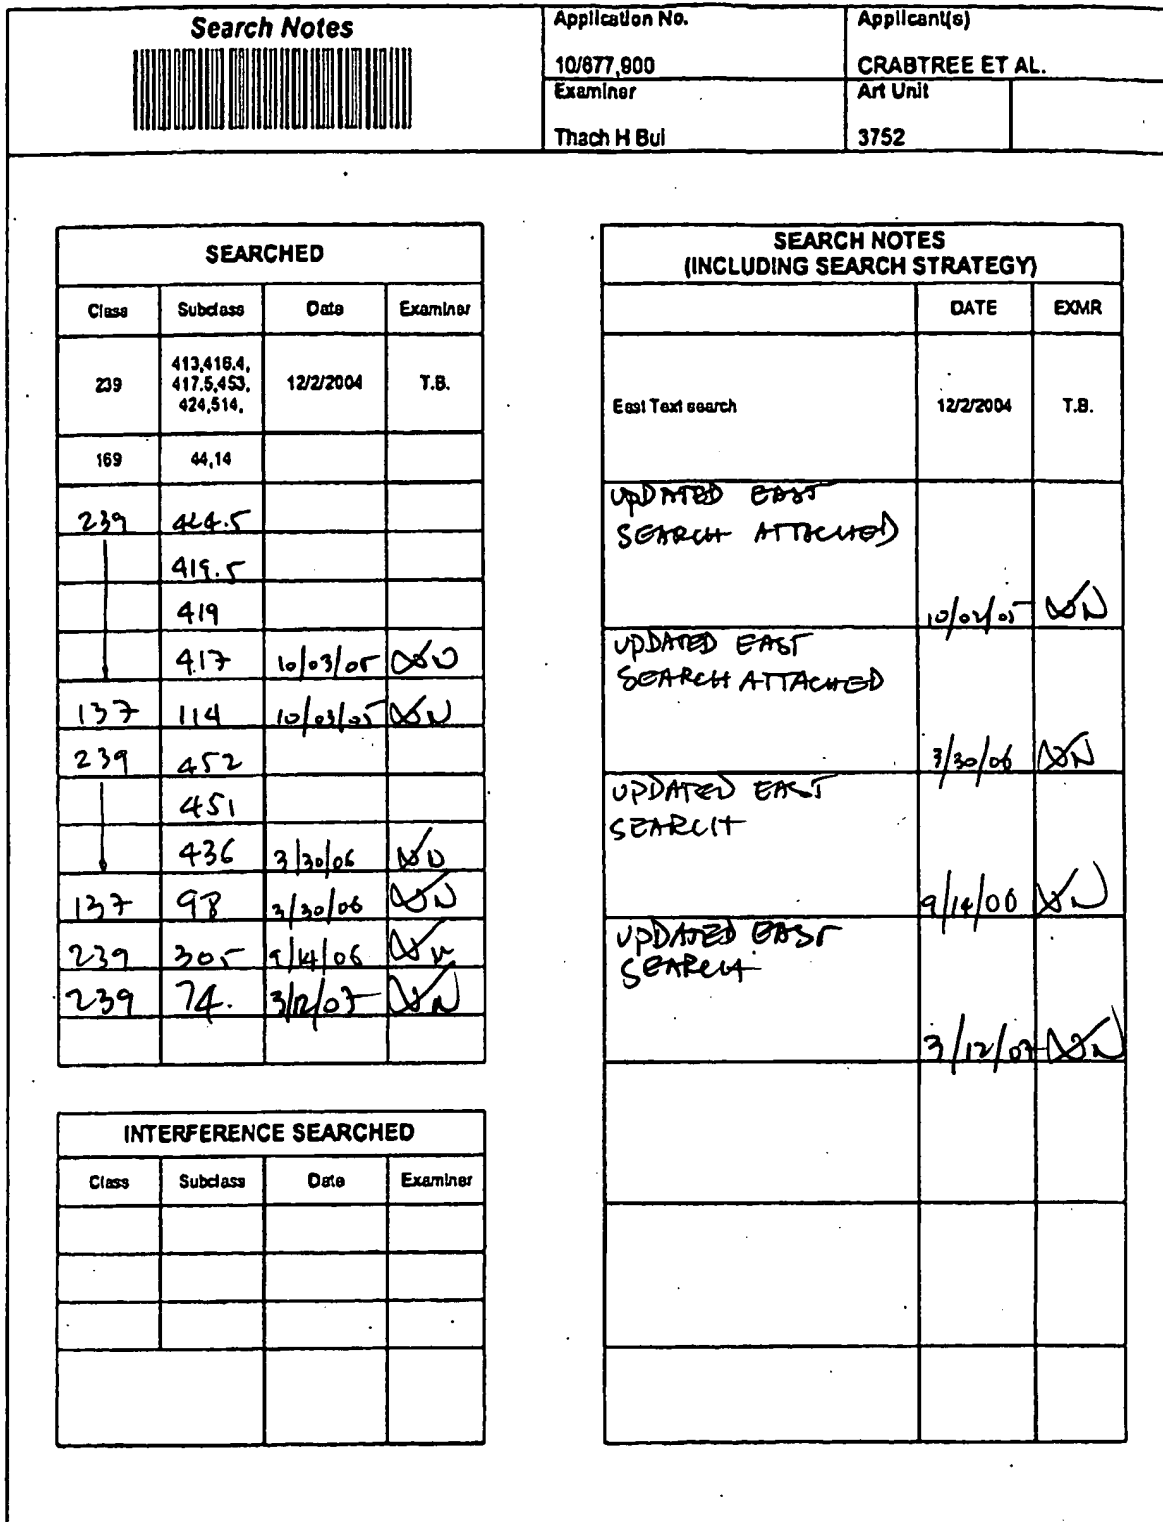 Search Notes
Application No.
10/677,900
Applicant(s)
CRABTREE ET AL.
Examiner
Thach H Bui
Art Unit
3752
SEARCHED
Class Subclass Date Examiner
239 413,416.4, 417.5,453, 424,514, 12/2/2004 T.B.
169 44,14
239 424.5
419.5
419
417 10/03/05
137 114 10/03/05
239 452
451
436 3/30/06
137 98 3/30/06
239 305 9/14/06
239 74. 3/12/07
INTERFERENCE SEARCHED
Class Subclass Date Examiner
SEARCH NOTES
(INCLUDING SEARCH STRATEGY)
DATE EXMR
East Text search 12/2/2004 T.B.
UPDATED EAST
SEARCH ATTACHED
10/02/05
UPDATED EAST
SEARCH ATTACHED
3/30/06
UPDATED EAST
SEARCH
9/14/06
UPDATED EAST
SEARCH
3/12/07